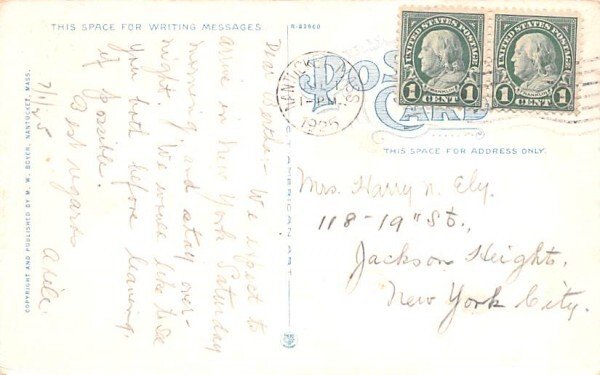 THIS SPACE FOR WRITING MESSAGES
R-43960
7/1/25.
Dear Esther- We expect to
arrive in New York Saturday
morning, and stay over-
night. We would like to see
you both before leaving,
if possible.
Best regards
COPYRIGHT AND PUBLISHED BY M. W. BOYER, NANTUCKET, MASS.
NANTUCKET
MASS
1925
UNITED STATES POSTAGE
FRANKLIN
1 CENT 1
UNITED STATES POSTAGE
FRANKLIN
1 CENT 1
POST
CARD
THIS SPACE FOR ADDRESS ONLY.
Mrs. Harry N. Ely.
118-19" St.,
Jackson Heights,
New York City.